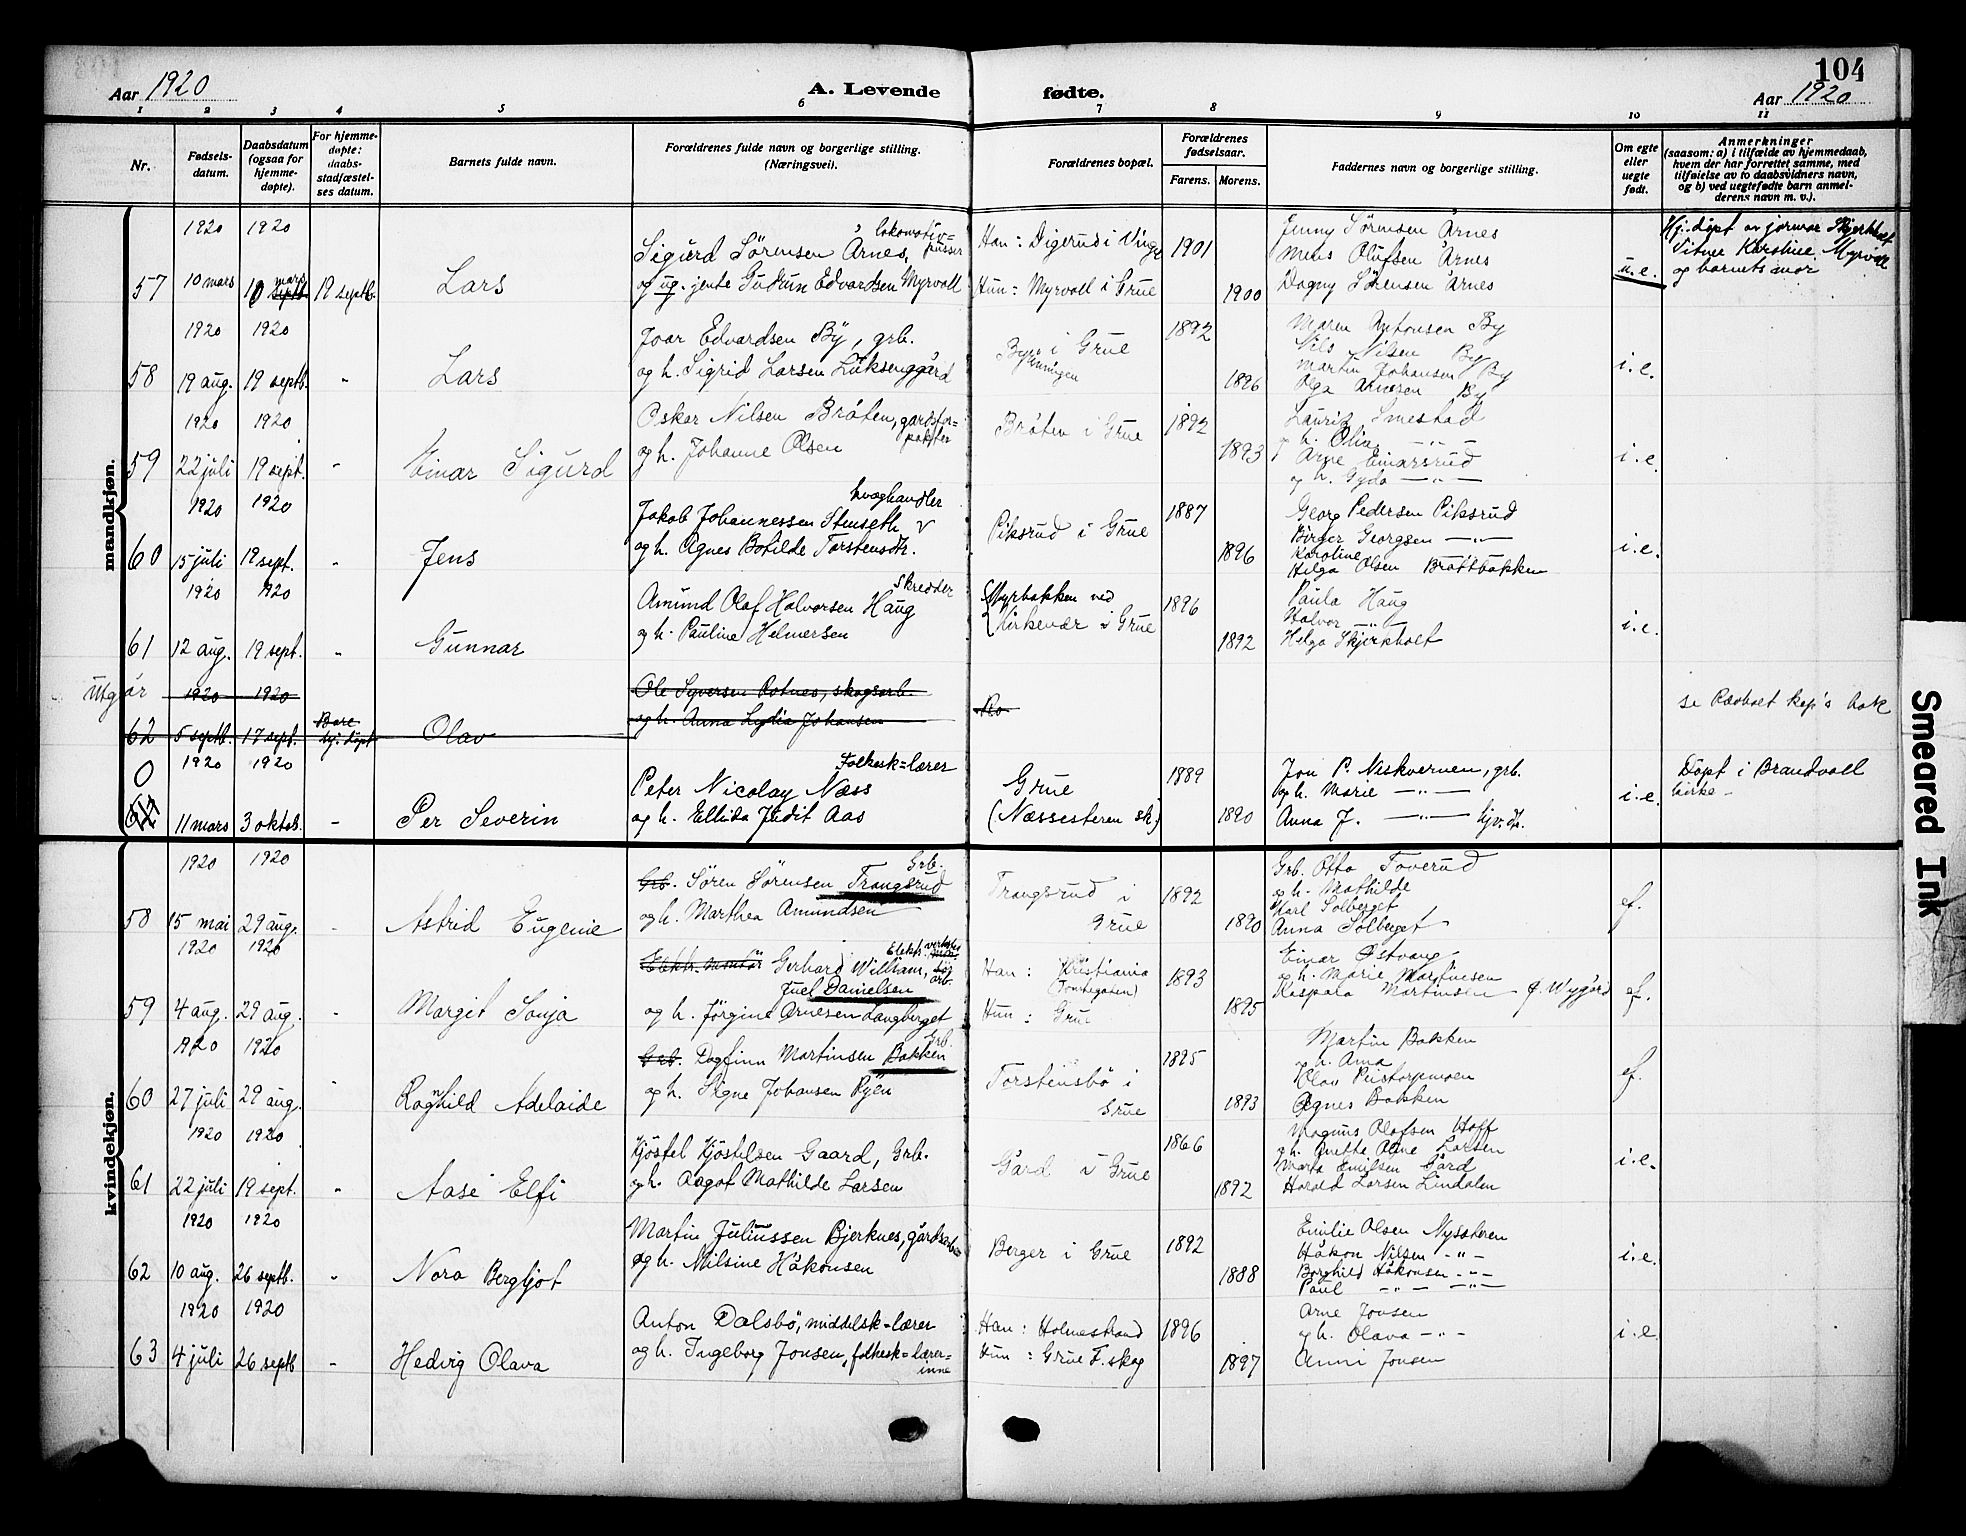 104
Aar 1920
A. Levende
fødte.
Aar 1920
1 2 3 4 5 6 7 8 9 10 11
Nr.
Fødsels-
datum.
Daabsdatum
(ogsaa for
hjemme-
døpte).
For hjemme-
døpte:
daabs-
stadfæstel-
ses datum.
Barnets fulde navn.
Forældrenes fulde navn og borgerlige stilling.
(Næringsvei).
Forældrenes bopæl.
Forældrenes
fødselsaar.
Farens. Morens.
Faddernes navn og borgerlige stilling.
Om egte
eller
uegte
født.
Anmerkninger
(saasom: a) i tilfælde av hjemmedaab,
hvem der har forrettet samme, med
tilføielse av to daabsvidners navn,
og b) ved uegtefødte barn anmel-
derens navn m. v.).
mandkjøn.
57
1920
10 mars
1920
10 septb. mars
19 septb.
Lars
Sigurd Sørensen Årnes, lokomotiv-
pusser
og ug. jente Gudrun Edvardsen Myrvoll
Han: Digerud i Vinger
Hun: Myrvoll i Grue
1901
1900
Jenny Sørensen Årnes
Mens Olufsen Årnes
Dagny Sørensen Årnes
u.e.
Hj. døpt av jormor Skjerkholt
Vitner Karstine Myrvoll
og barnets mor
58
1920
19 aug.
1920
19 septb.
"
Lars
Joar Edvardsen By, grb.
og h. Sigrid Larsen Luksenggård
i Grue
1892
1896
Maren Antonsen By
Nils Nilsen By
Martin Johansen By
Olga Arnesen By
i.e.
59
1920
22 juli
1920
19 sept.
"
Einar Sigurd
Oskar Nilsen Bråten, gardsfor-
pakter
og h. Johanne Olsen
Bråten i Grue
1892
1893
Lauritz Smestad
og h. Olin — " —
Arne Einarsrud
og h. Gyda — " —
i.e.
60
1920
15 juli
1920
19 sept.
"
Jens
kvæghandler
Jakob Johannessen Stenseth
og h. Agnes Botilde Torstensdtr.
Piksrud i Grue
1887
1896
Georg Pedersen Piksrud
Birger Georgsen — " —
Karoline
Helga Olsen Bråttbakken
i.e.
61
1920
12 aug.
1920
19 sept.
"
Gunnar
skredder
Amund Olaf Halvorsen Haug
og h. Pauline Helmersen
Myrbakken ved
Kirkevær i Grue
1896
1892
Paula Haug
Halvor — " —
Helga Skjerkholt
i.e.
Utgår
62
1920
5 septb.
1920
17 sept.
Bare
hj. døpt
Olav
Ole Syversen Rotnes, skogsarb.
og h. Anna Lydia Johansen
Ro
se Rævholt kap's bok
0
62
1920
11 mars
1920
3 oktob.
-
Per Severin
Folkesk=lærer
Peter Nicolay Næss
og h. Ellida Judit Aas
Grue
(Næssesteren sk.)
1889
1890
Jon P. Neskvernen, grb.
og h. Marie — " —
Anna J. — " — hjv. dt.
i.e.
Døpt i Brandvoll
kirke -
kvindekjøn.
58
1920
15 mai
1920
29 aug.
-
Astrid Eugenie
Grb. Søren Sørensen Trangsrud Grb.
og h. Marthea Amundsen
Trangsrud i
Grue
1892
1890
Grb. Otto Toverud
og h. Mathilde
Karl Solberget
Anna Solberget
ef.
59
1920
4 aug.
1920
29 aug.
"
Margit Sonja
Elektr. montør Gerhard William, Elektr.
Juel Danielsen arb.
og h. Jørgine Arnesen Langberget
Han: Kristiania
Hun: Grue
1893
1895
Einar Østvang
og h. Marie Martinsen
Kaspara Martinsen
ef.
60
1920
27 juli
1920
29 aug.
"
Ragnhild Adelaide
Grb. Dagfinn Martinsen Bakken Grb.
og h. Signe Johansen Ryen
Torstensbø i
Grue
1895
1893
Martin Bakken
og h. Anna
Olav
Agnes Bakken
ef.
61
1920
22 juli
1920
19 sept.
"
Aase Elfi
Kjøstel Kjøstelsen Gaard, Grb.
og h. Aagot Mathilde Larsen
Gård i Grue
1866
1892
Magnus Olafsen Hoff
og h. Anette Oline Larsen
Marta Emilsen Gård
Harald Larsen Lindalen
i.e.
62
1920
10 aug.
1920
26 septb.
"
Nora Bergljot
Martin Juliussen Bjerknes, gårdsarb.
og h. Milsine Håkonsen
Berger i Grue
1892
1888
Emilie Olsen Nyseteren
Håkon Nilsen - " -
Borghild Håkonsen - " -
Paul - " - — " —
i.e.
63
1920
4 juli
1920
26 septb
-
Hedvig Olava
Anton Dalsbö, middelsk=lærer
og h. Ingeborg Jonsen, folkesk=lærer=
inne
Han: Holmestrand
Hun: Grue F. skog
1896
1897
Arne Jonsen
og h. Olava - " -
Anni Jonsen
i.e.
Smeared Ink